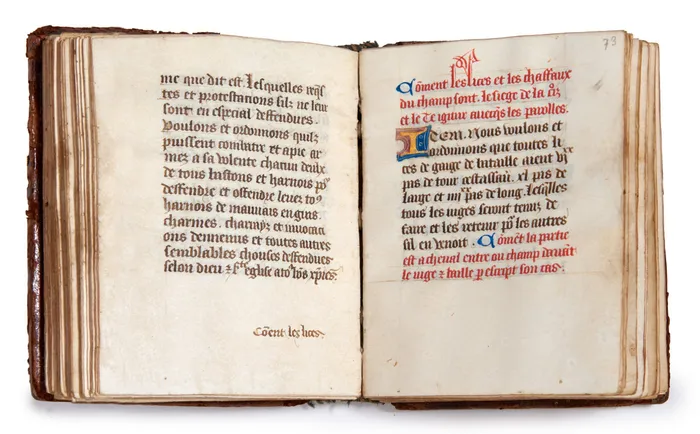 me que dit est. Lesquelles reqs
tes et protestations silz ne leur
sont en especial deffendues.
Voulons et ordonnons quilz
puissent combatre et apie ar
mez a sa volente chacun deux
de tous bastons et harnois po
deffendre et offendre leur to9
harnois de mauvais engins.
charmes. charrayz et invocati
ons dennemis et toutes autres
semblables chouses deffendues
selon dieu & ste eglise a to9 bos xpiens.
Coent les lices
79
Coment les lices et les chaffaux
du champ sont. le siege de la
et le aucuns les parolles.
Item. Nous voulons et
ordonnons que toutes li
ces de gaige de bataille aient vj xx
pas de tour cestassau. xl pas de
large et iiij xx pas de long. Lesqlles
tous les iuges seront tenuz de
faire et les retenir po les autres
sil en venoit. Comet la partie
est a cheval entre ou champ devat
le iuge & baille p escript son cas.